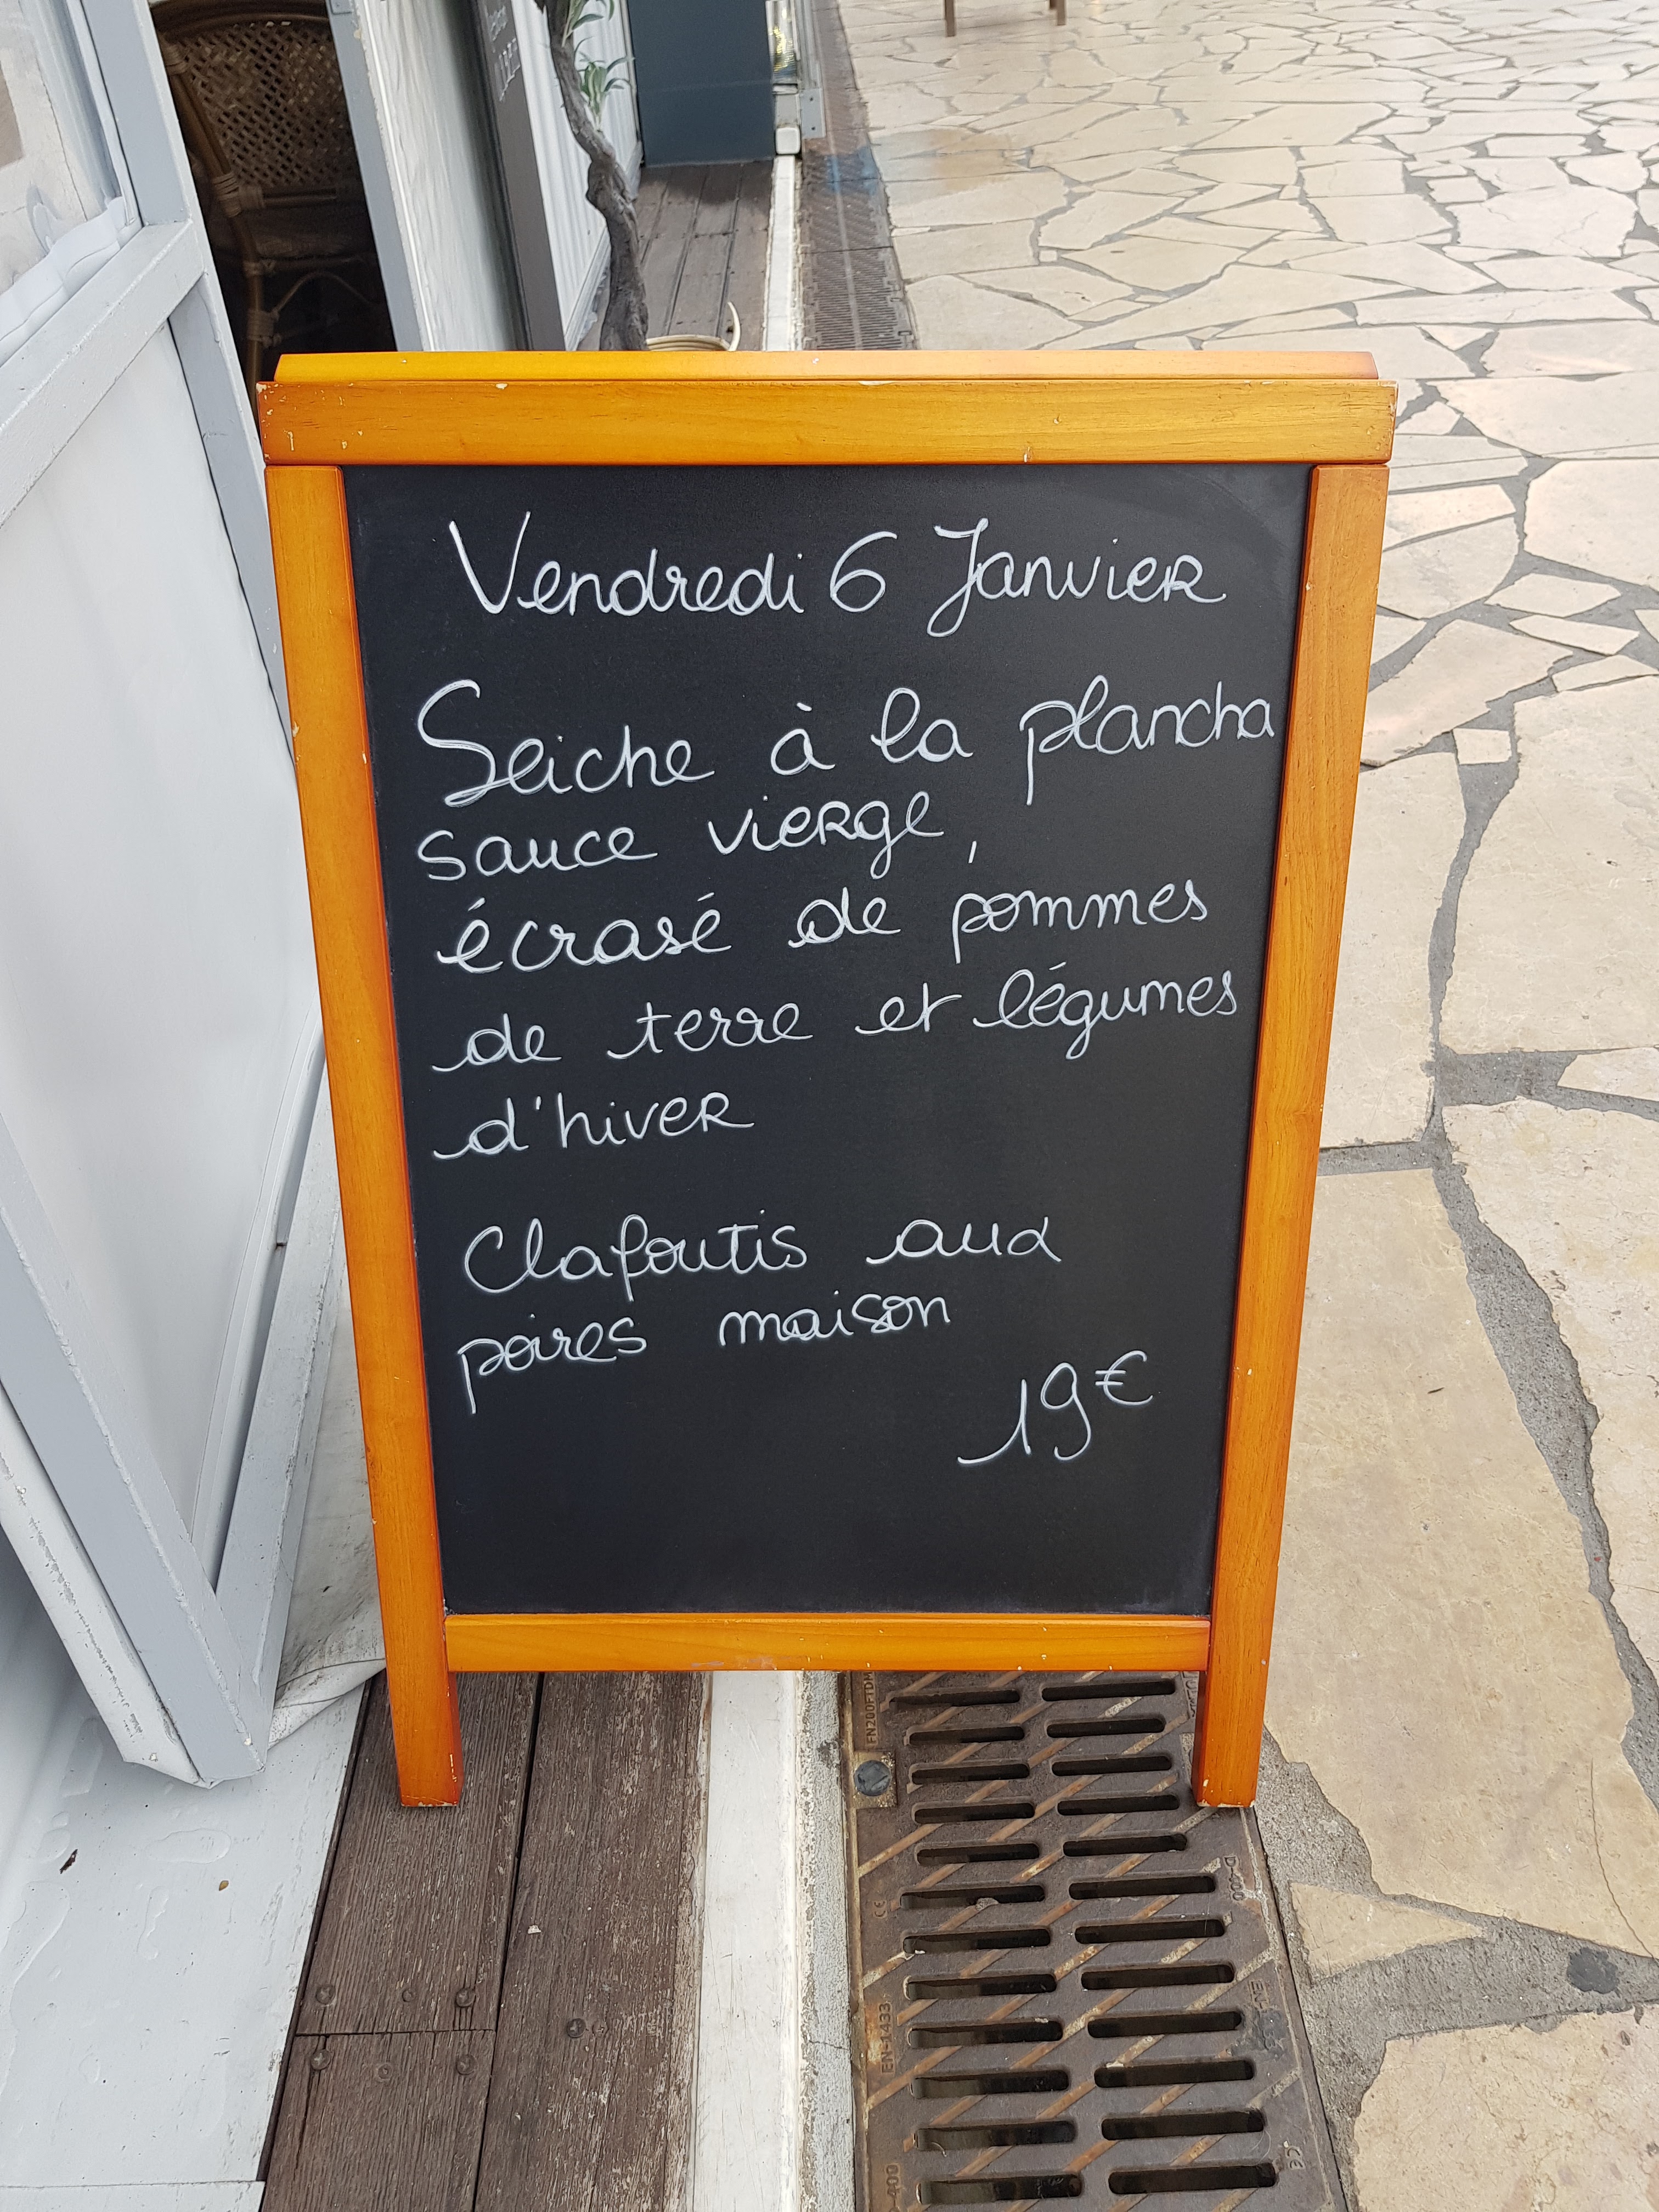 Vendredi 6 Janvier
Seiche à la plancha
sauce vierge,
écrasé de pommes
de terre et légumes
d'hiver
Clafoutis aux
poires maison
19€
EN-1433